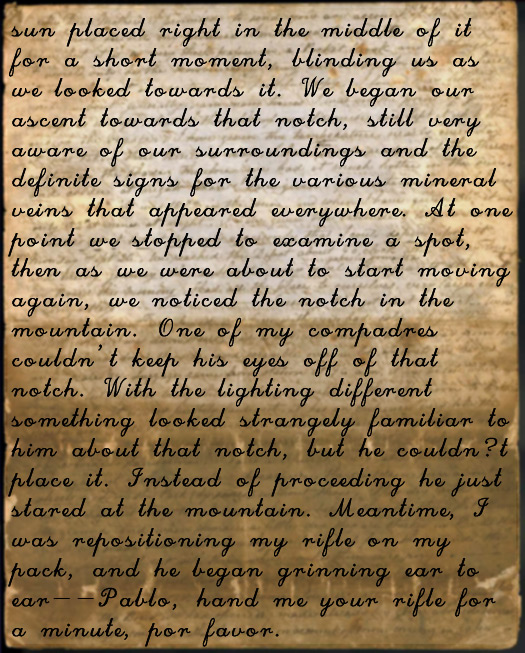 sun placed right in the middle of it
for a short moment, blinding us as
we looked towards it. We began our
ascent towards that notch, still very
aware of our surroundings and the
definite signs for the various mineral
veins that appeared everywhere. At one
point we stopped to examine a spot,
then as we were about to start moving
again, we noticed the notch in the
mountain. One of my compadres
couldn't keep his eyes off of that
notch. With the lighting different
something looked strangely familiar to
him about that notch, but he couldn?t
place it. Instead of proceeding he just
stared at the mountain. Meantime, I
was repositioning my rifle on my
pack, and he began grinning ear to
ear——Pablo, hand me your rifle for
a minute, por favor.